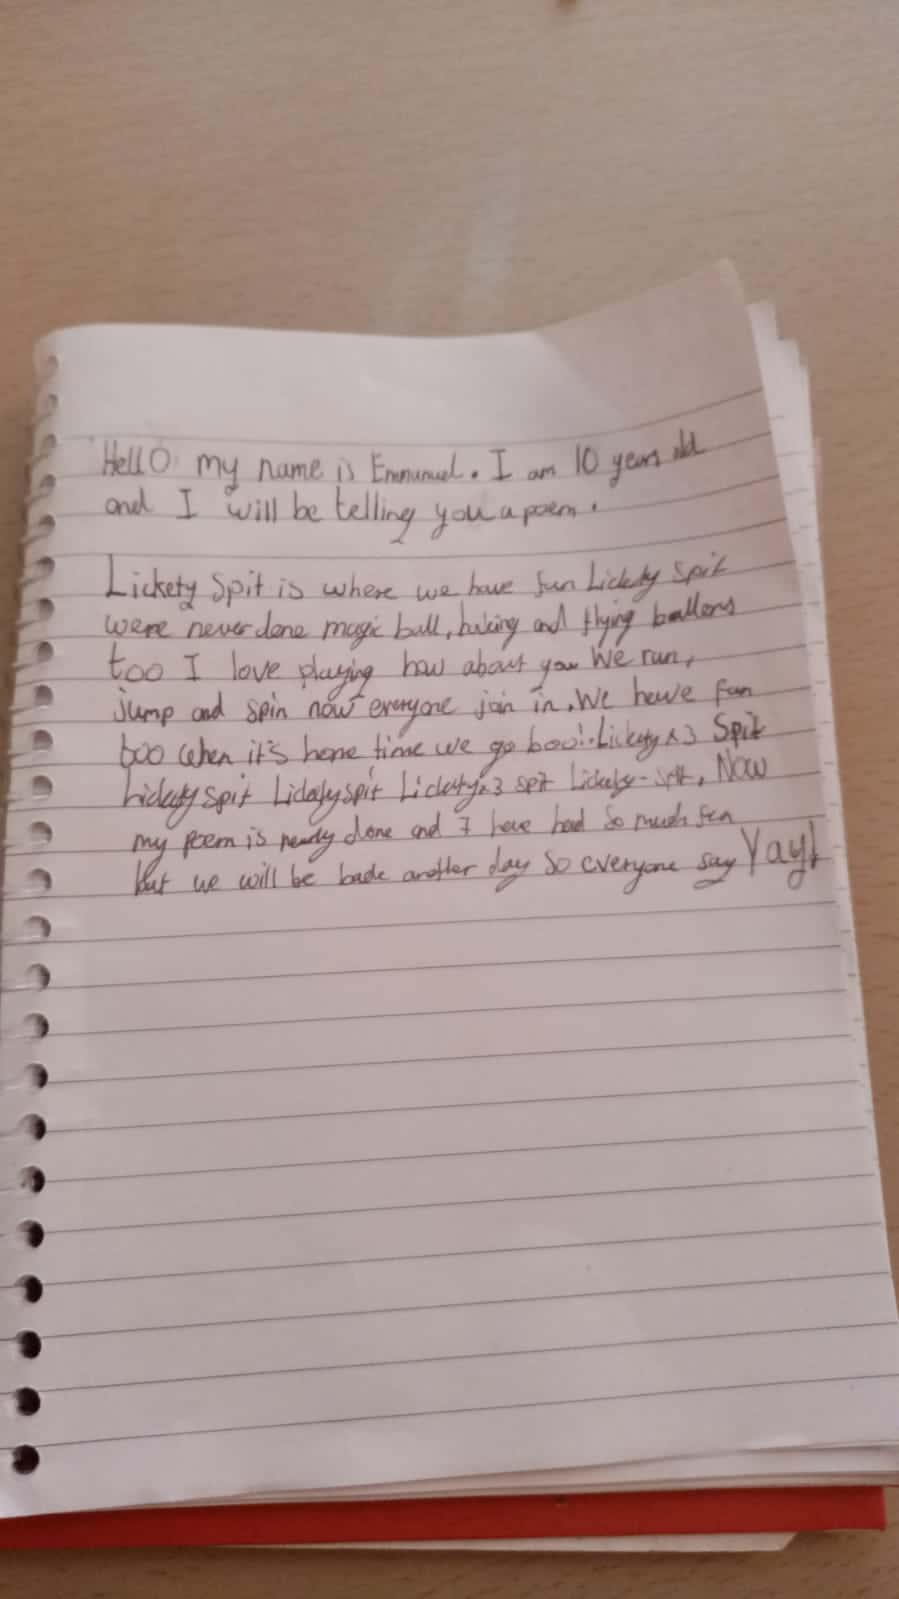 Hello my name is Emmanuel. I am 10 years old
and I will be telling you a poem.
Lickety Spit is where we have fun Lickety Spit
were never done magic ball, baking and flying ballons
too I love playing how about you We run,
jump and spin now everyone join in. We have fun
too when it's home time we go boo!. Lickety x3 Spit
Lickety spit Lickety spit Lickety x3 spit Lickety-spit. Now
my poem is nearly done and I have had so much fun
but we will be back another day so everyone say Yay!